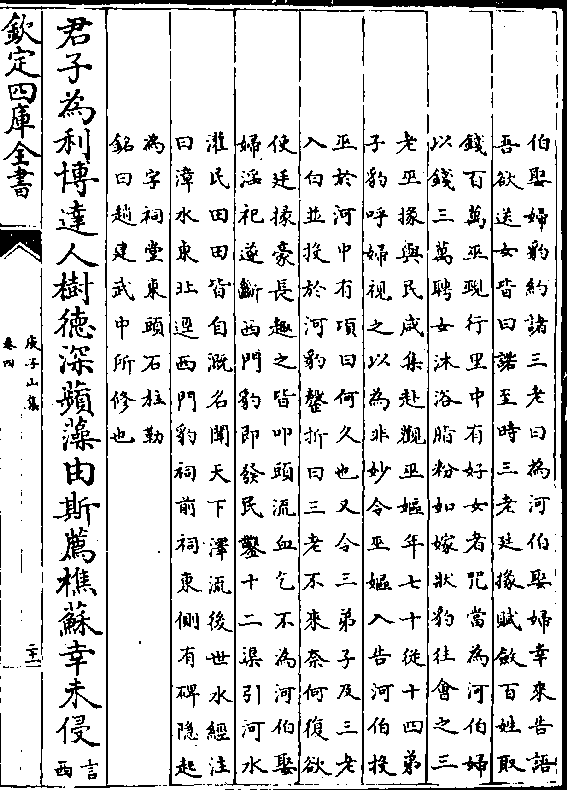 伯娶婦豹約諸三老曰為河伯娶婦幸來告語
吾欲送女皆曰諾至時三老廷掾賦斂百姓取
錢百萬巫覡行里中有好女者咒當為河伯婦
以錢三萬聘女沐浴脂粉如嫁狀豹往會之三
老巫掾與民咸集赴觀巫嫗年七十從十四弟
子豹呼婦視之以為非妙令巫嫗入告河伯投
巫於河中有頃曰何久也又令三弟子及三老
入白並投於河豹磬折曰三老不來奈何復欲
使廷掾豪長趣之皆叩頭流血乞不為河伯娶
婦淫祀遂斷西門豹即發民鑿十二渠引河水
灌民田田皆自溉名聞天下澤流後世水經注
曰漳水東北逕西門豹祠前祠東側有碑隐起
為字祠堂東頭石柱勒
銘曰趙建武中所修也
君子為利博達人樹德深蘋藻由斯薦樵蘇幸未侵
言
西
欽定四庫全書
庾子山集
卷四
二十一